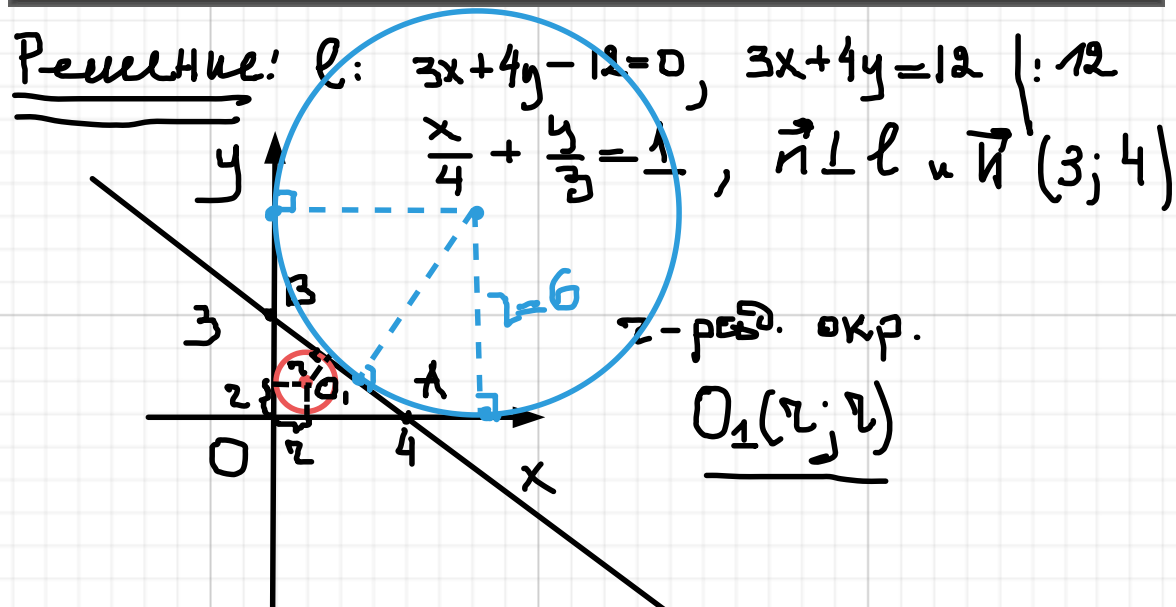 Решение: l: 3x+4y-12=0, 3x+4y=12 |:12
x/4 + y/3 = 1, n⊥l и n(3; 4)
y
B
3
r=6
r - рад. окр.
r O₁
r
A
O₁(r; r)
O r 4
x